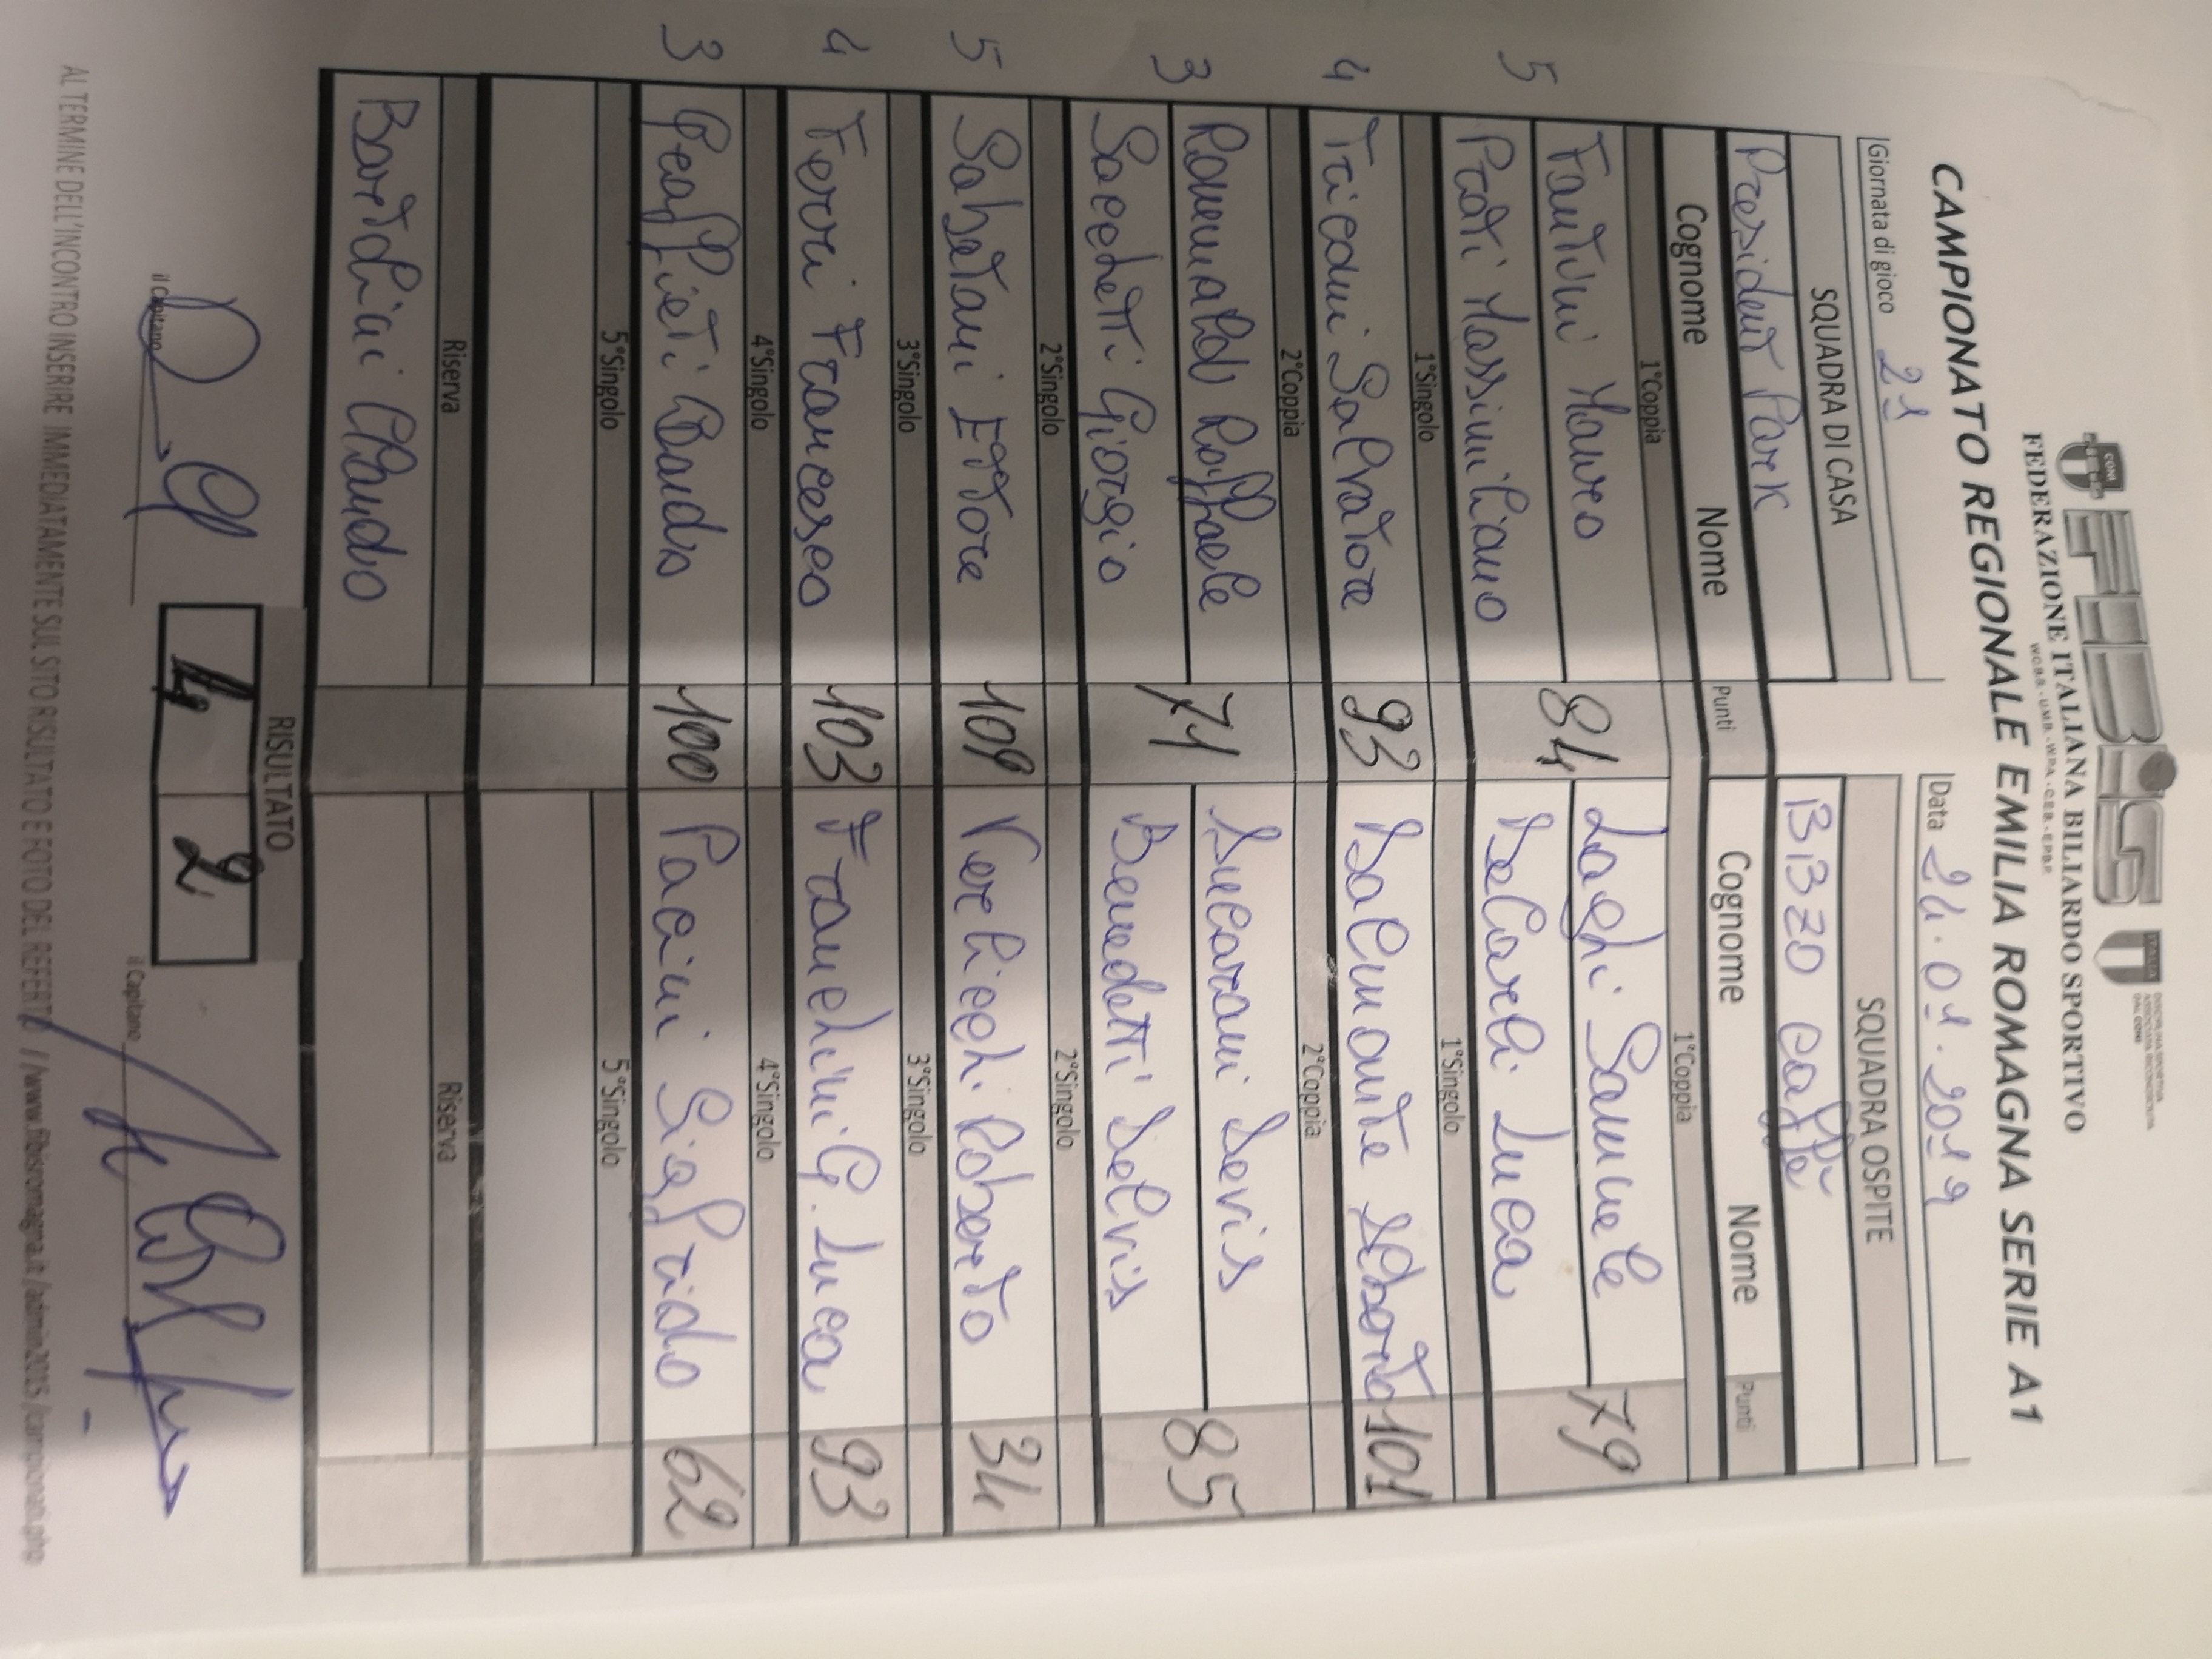 FIBiS
CONI
FEDERAZIONE ITALIANA BILIARDO SPORTIVO
W.C.B.S. - U.M.B. - W.P.A. - C.E.B. - E.P.B.F.
ITALIA
DISCIPLINA SPORTIVA
ASSOCIATA RICONOSCIUTA
DAL CONI
CAMPIONATO REGIONALE EMILIA ROMAGNA SERIE A1
Giornata di gioco 21 Data 24.01.2019
SQUADRA DI CASA SQUADRA OSPITE
President Park BIBZO Caffè
Cognome Nome Punti Cognome Nome Punti
1°Coppia 1°Coppia
5 Fantini Mauro 84 Laghi Samuele 79
Prati Massimiliano De Carli Luca
1°Singolo 1°Singolo
4 Salvatore 93 Balmonte 101
2°Coppia 2°Coppia
3 Romualdo Raffaele 71 Lucarani Devis 85
Sacchetti Giorgio Benedetti Delvis
2°Singolo 2°Singolo
5 Sabetani Ettore 108 Verlicchi Roberto 34
3°Singolo 3°Singolo
4 Ferri Francesco 103 Franchini G. Luca 93
4°Singolo 4°Singolo
3 100 Pacini Sigfrido 62
5°Singolo 5°Singolo
Riserva Riserva
Bartolini Claudio
RISULTATO
il Capitano 4 2 il Capitano
AL TERMINE DELL'INCONTRO INSERIRE IMMEDIATAMENTE SUL SITO RISULTATO E FOTO DEL REFERTO //www.fibisromagna.it/admin2015/campionati.php